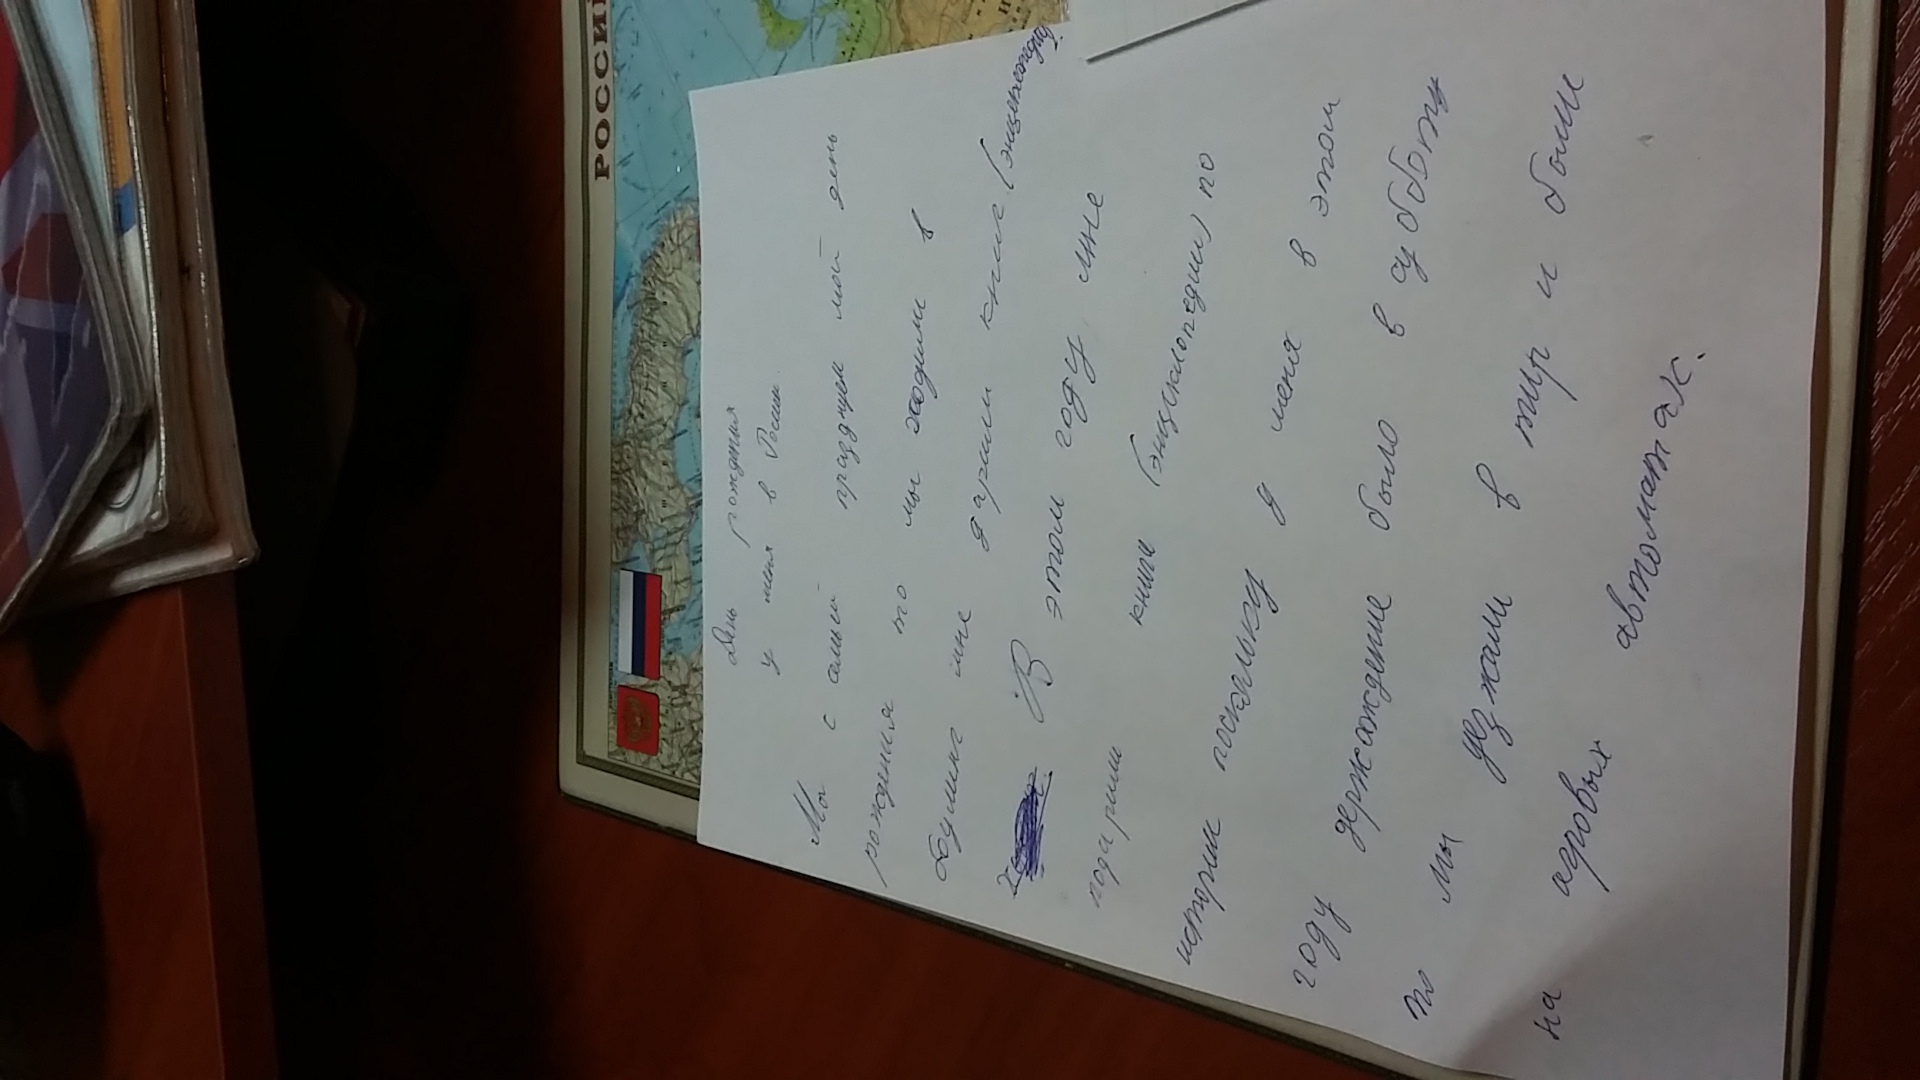 РОССИ
День рождения
у меня в России.
Мы с амьей празднуем мой день
рождения то мы ходим в
боулинг мне дарят книг (энциклопедиу).
В этом году мне
подарили книги (энциклопедии) по
истории поскольку у меня в этом
году держаждение было в субботу
то мы уезжали в тир и были
на игровых автоматах.